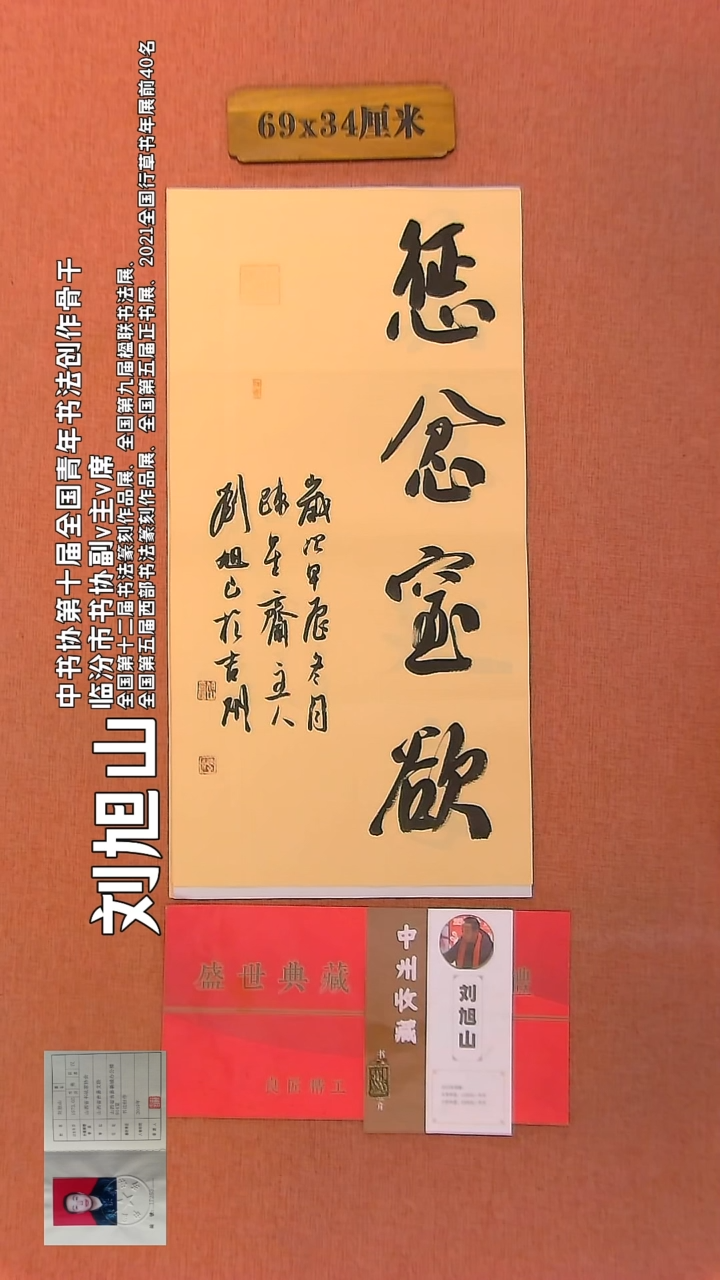 69x34厘米
惩忿窒欲
歲次甲辰冬月
主人
劉旭山於吉州
中书协第十届全国青年书法创作骨干
临汾市书协副v主v席
全国第十二届书法篆刻作品展、全国第九届楹联书法展、
全国第五届西部书法篆刻作品展、全国第五届正书展、2021全国行草书年展前40名
刘旭山
盛世典藏
良品精工
中州收藏
刘旭山